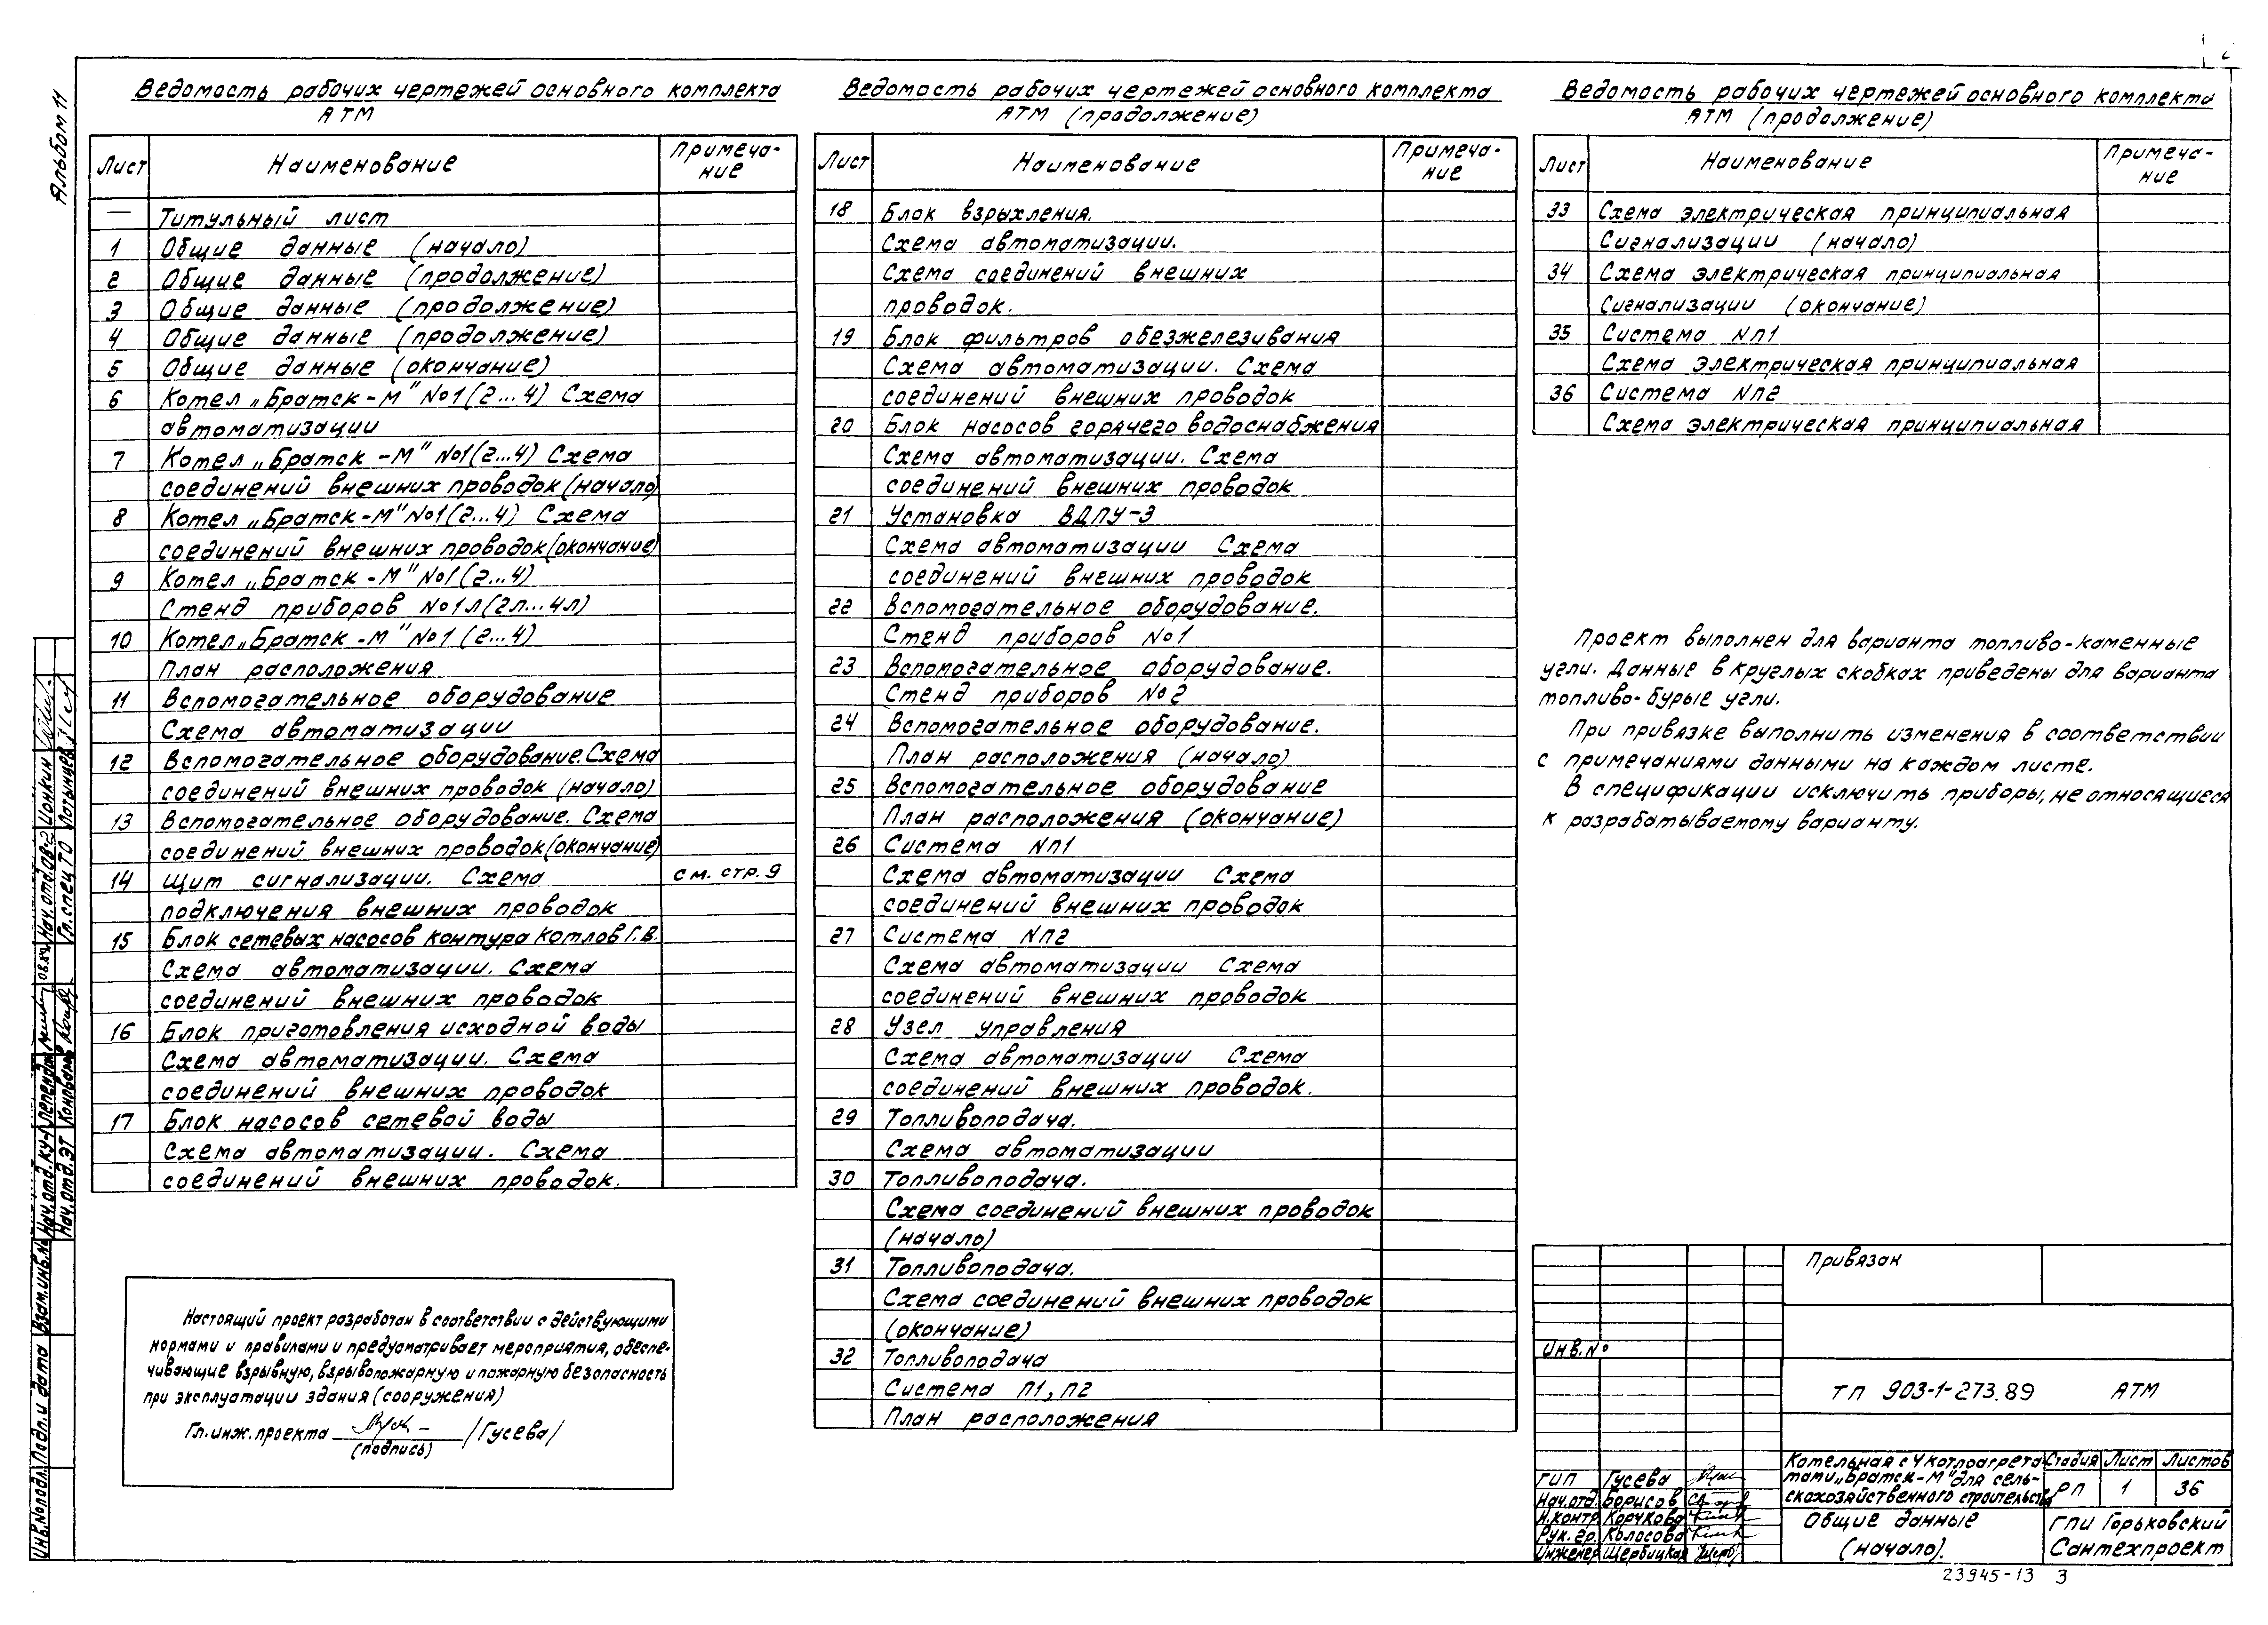 Альбом 11
Ведомость рабочих чертежей основного комплекта
АТМ
Лист Наименование Примеча-
ние
— Титульный лист
1 Общие данные (начало)
2 Общие данные (продолжение)
3 Общие данные (продолжение)
4 Общие данные (продолжение)
5 Общие данные (окончание)
6 Котел „Братск-М" №1(2...4) Схема
автоматизации
7 Котел „Братск-М" №1(2...4) Схема
соединений внешних проводок (начало)
8 Котел „Братск-М" №1(2...4) Схема
соединений внешних проводок (окончание)
9 Котел „Братск-М" №1(2...4)
Стенд приборов №1л(2л...4л)
10 Котел „Братск-М" №1 (2...4)
План расположения
11 Вспомогательное оборудование
Схема автоматизации
12 Вспомогательное оборудование. Схема
соединений внешних проводок (начало)
13 Вспомогательное оборудование. Схема
соединений внешних проводок (окончание)
14 Щит сигнализации. Схема см. стр. 9
подключения внешних проводок
15 Блок сетевых насосов контура котлов Г.В.
Схема автоматизации. Схема
соединений внешних проводок
16 Блок приготовления исходной воды
Схема автоматизации. Схема
соединений внешних проводок
17 Блок насосов сетевой воды
Схема автоматизации. Схема
соединений внешних проводок.
Настоящий проект разработан в соответствии с действующими
нормами и правилами и предусматривает мероприятия, обеспе-
чивающие взрывную, взрывопожарную и пожарную безопасность
при эксплуатации здания (сооружения)
Гл. инж. проекта /Гусева/
(подпись)
Ведомость рабочих чертежей основного комплекта
АТМ (продолжение)
Лист Наименование Примеча-
ние
18 Блок взрыхления.
Схема автоматизации.
Схема соединений внешних
проводок.
19 Блок фильтров обезжелезивания
Схема автоматизации. Схема
соединений внешних проводок
20 Блок насосов горячего водоснабжения
Схема автоматизации. Схема
соединений внешних проводок
21 Установка ВДПУ-3
Схема автоматизации Схема
соединений внешних проводок
22 Вспомогательное оборудование.
Стенд приборов №1
23 Вспомогательное оборудование.
Стенд приборов №2
24 Вспомогательное оборудование.
План расположения (начало)
25 Вспомогательное оборудование
План расположения (окончание)
26 Система №п1
Схема автоматизации Схема
соединений внешних проводок
27 Система №п2
Схема автоматизации Схема
соединений внешних проводок
28 Узел управления
Схема автоматизации Схема
соединений внешних проводок.
29 Топливоподача.
Схема автоматизации
30 Топливоподача.
Схема соединений внешних проводок
(начало)
31 Топливоподача.
Схема соединений внешних проводок
(окончание)
32 Топливоподача
Система П1, П2
План расположения
Ведомость рабочих чертежей основного комплекта
АТМ (продолжение)
Лист Наименование Примеча-
ние
33 Схема электрическая принципиальная
Сигнализации (начало)
34 Схема электрическая принципиальная
Сигнализации (окончание)
35 Система №п1
Схема электрическая принципиальная
36 Система №п2
Схема электрическая принципиальная
Проект выполнен для варианта топливо-каменные
угли. Данные в круглых скобках приведены для варианта
топливо-бурые угли.
При привязке выполнить изменения в соответствии
с примечаниями данными на каждом листе.
В спецификации исключить приборы, не относящиеся
к разрабатываемому варианту.
Привязан
Инв. №
ТП 903-1-273.89 АТМ
Котельная с 4 котлоагрега-
тами „Братск-М" для сель-
скохозяйственного строительства
Стадия Лист Листов
РП 1 36
ГИП Гусева
Нач.отд. Борисов
Н.контр. Корчкова
Рук. гр. Колосова
Инженер Щербицкая
Общие данные
(начало).
ГПИ Горьковский
Сантехпроект
23945-13 3
Инв.№подл. Подп. и дата Взам.инв.№
Нач.отд.КУ-1 Лепендин 08.89
Нач.отд.ЭТ Коновалов
Нач.отд.ОВ-2 Ионкин
Гл.спец.ТО Латынцев